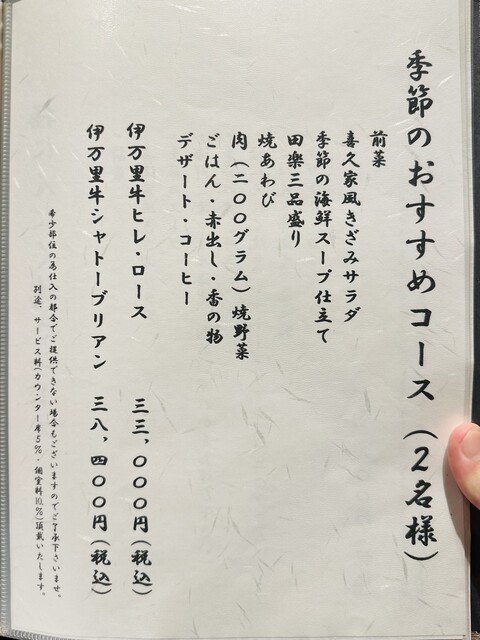 季節のおすすめコース（2名様）
前菜
喜久家風きざみサラダ
季節の海鮮スープ仕立て
田楽三品盛り
焼あわび
肉（二〇〇グラム）焼野菜
ごはん・赤出し・香の物
デザート・コーヒー
伊万里牛ヒレ・ロース　三三、〇〇〇円（税込）
伊万里牛シャトーブリアン　三八、四〇〇円（税込）
希少部位の為仕入の都合でご提供できない場合もございますのでご了承下さいませ。
別途、サービス料（カウンター席5%・個室料10%）頂戴いたします。